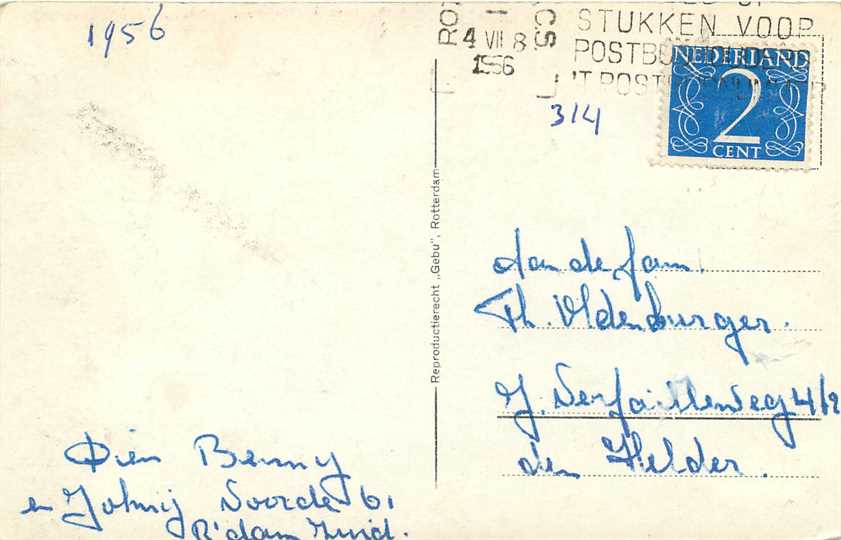 1956
4 VII 8
1956
STUKKEN VOOR
NEDERLAND
2
CENT
314
Reproductierecht „Gebu", Rotterdam
Aan de fam.
Th. Oldenburger.
J. Verfailleweg 4/2
den Helder.
Dien Benny
en Johnij Noorde 61
R'dam Zuid.